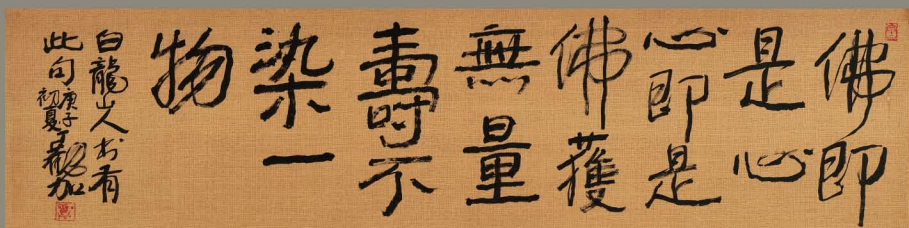 佛即
是心
心即是
佛獲
無量
壽不
染一
物
白龍山人有
此句庚子
初夏